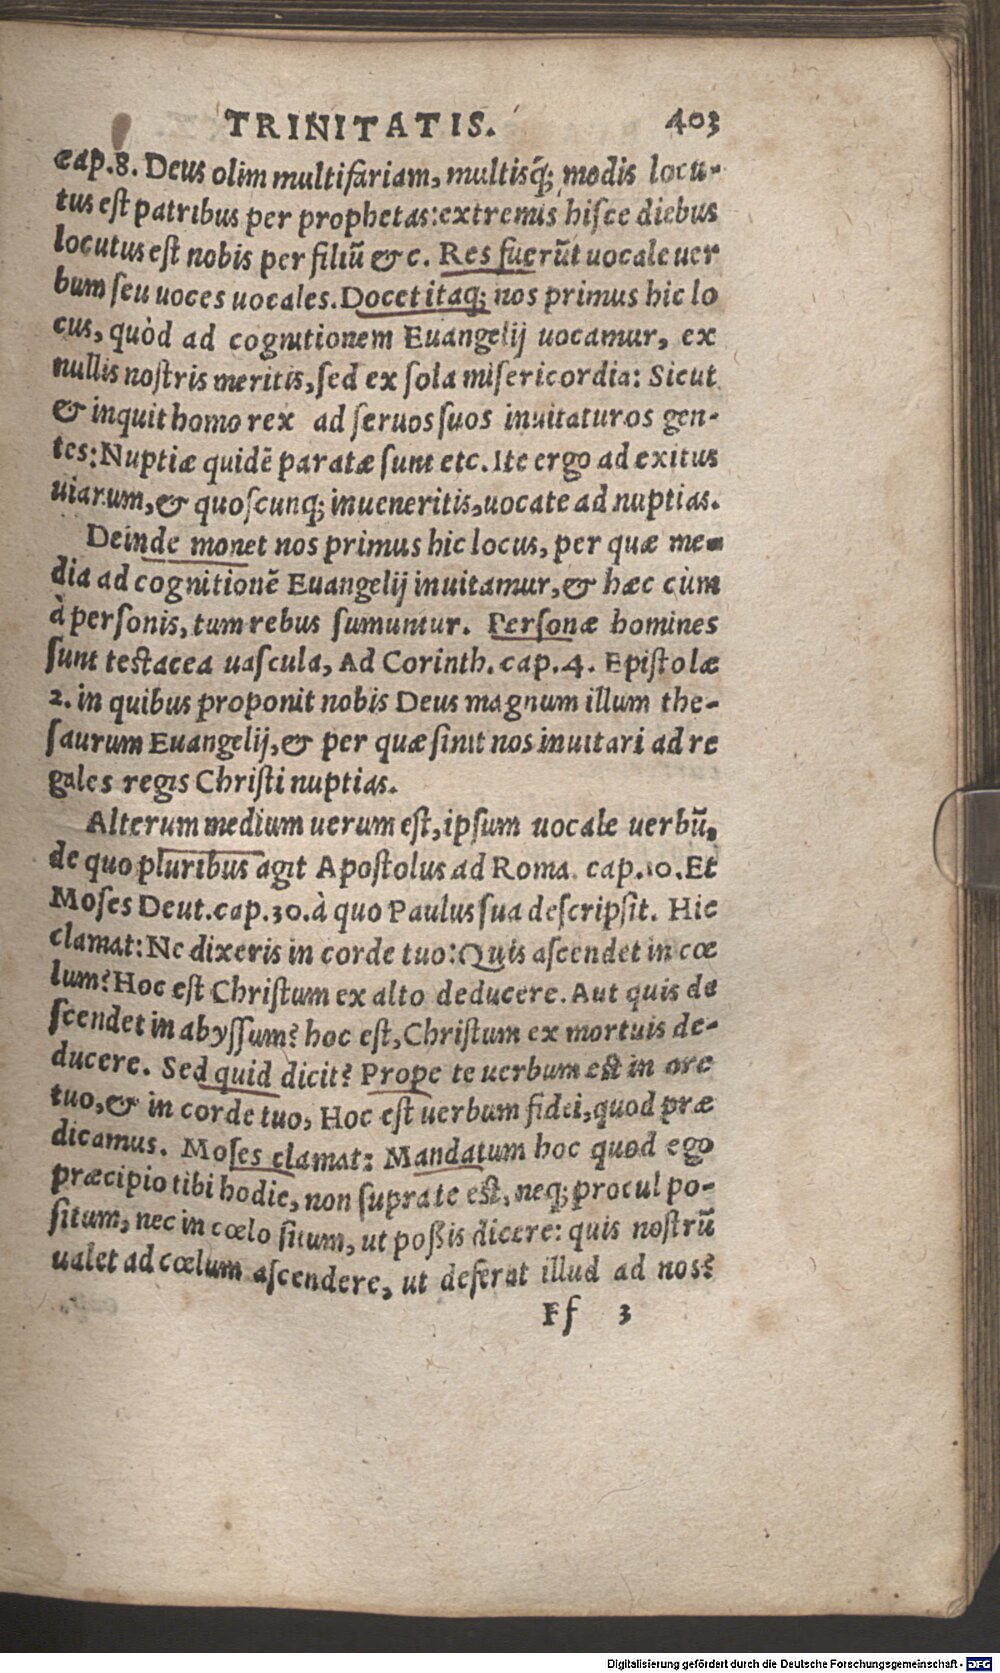 TRINITATIS. 403
cap.8. Deus olim multifariam, multisq́; modis locu-
tus est patribus per prophetas: extremis hisce diebus
locutus est nobis per filiũ & c. Res fuerũt uocale uer
bum seu uoces uocales. Docet itaq; nos primus hic lo
cus, quòd ad cognitionem Euangelij uocamur, ex
nullis nostris meritis, sed ex sola misericordia: Sicut
& inquit homo rex ad seruos suos inuitaturos gen-
tes: Nuptiæ quidẽ paratæ sunt etc. Ite ergo ad exitus
uiarum, & quoscunq; inueneritis, uocate ad nuptias.
Deinde monet nos primus hic locus, per quæ me-
dia ad cognitionẽ Euangelij inuitamur, & hæc cùm
à personis, tum rebus sumuntur. Personæ homines
sunt testacea uascula, Ad Corinth. cap.4. Epistolæ
2. in quibus proponit nobis Deus magnum illum the-
saurum Euangelij, & per quæ sinit nos inuitari ad re
gales regis Christi nuptias.
Alterum medium uerum est, ipsum uocale uerbũ,
de quo pluribus agit Apostolus ad Roma. cap.10. Et
Moses Deut. cap.30. à quo Paulus sua descripsit. Hic
clamat: Ne dixeris in corde tuo: Quis ascendet in cœ
lum? Hoc est Christum ex alto deducere. Aut quis de
scendet in abyssum? hoc est, Christum ex mortuis de-
ducere. Sed quid dicit? Prope te uerbum est in ore
tuo, & in corde tuo, Hoc est uerbum fidei, quod præ
dicamus. Moses clamat: Mandatum hoc quod ego
præcipio tibi hodie, non supra te est, neq; procul po-
situm, nec in cœlo situm, ut poßis dicere: quis nostrũ
ualet ad cœlum ascendere, ut deferat illud ad nos?
Ff 3
Digitalisierung gefördert durch die Deutsche Forschungsgemeinschaft - DFG